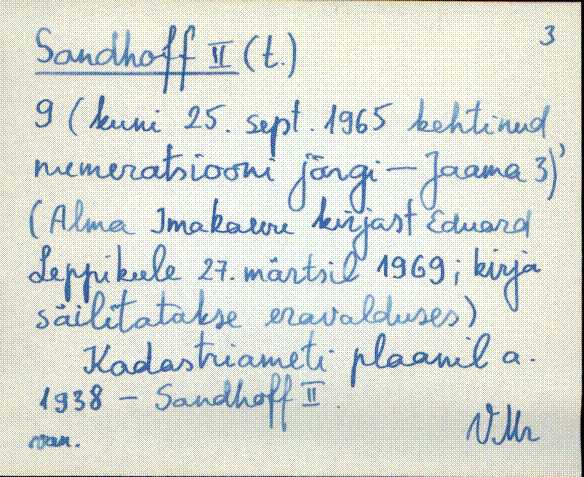 3
Sandhoff II (t.)
9 (kuni 25. sept. 1965 kehtinud
numeratsiooni järgi — Jaama 3)'
(Alma Imakaevu kirjast Eduard
Leppikule 27. märtsil 1969; kirja
säilitatakse eravalduses)
Kadastriameti plaanil a.
1938 — Sandhoff II.
VMr